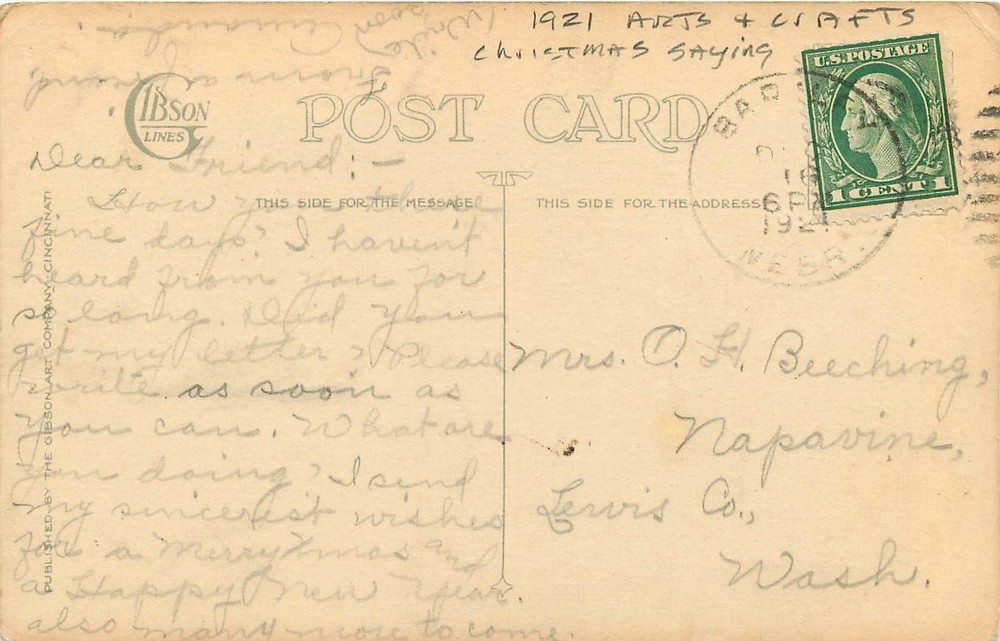 1921 ARTS & CRAFTS
CHRISTMAS SAYING
U.S. POSTAGE
1 CENT 1
16
6 PM
1921
NEBR.
GIBSON
LINES
POST CARD
THIS SIDE FOR THE MESSAGE
THIS SIDE FOR THE ADDRESS
PUBLISHED BY THE GIBSON ART COMPANY, CINCINNATI
Dear Friend:-
How you these
fine days? I haven't
heard from you for
so long. Did you
get my letter? Please
write as soon as
you can. What are
you doing? I send
my sincerest wishes
for a Merry Xmas and
a Happy New Year.
also many more to come.
From a friend
Amanda.
(Write soon
Mrs. O. H. Beeching,
Napavine,
Lewis Co.,
Wash.